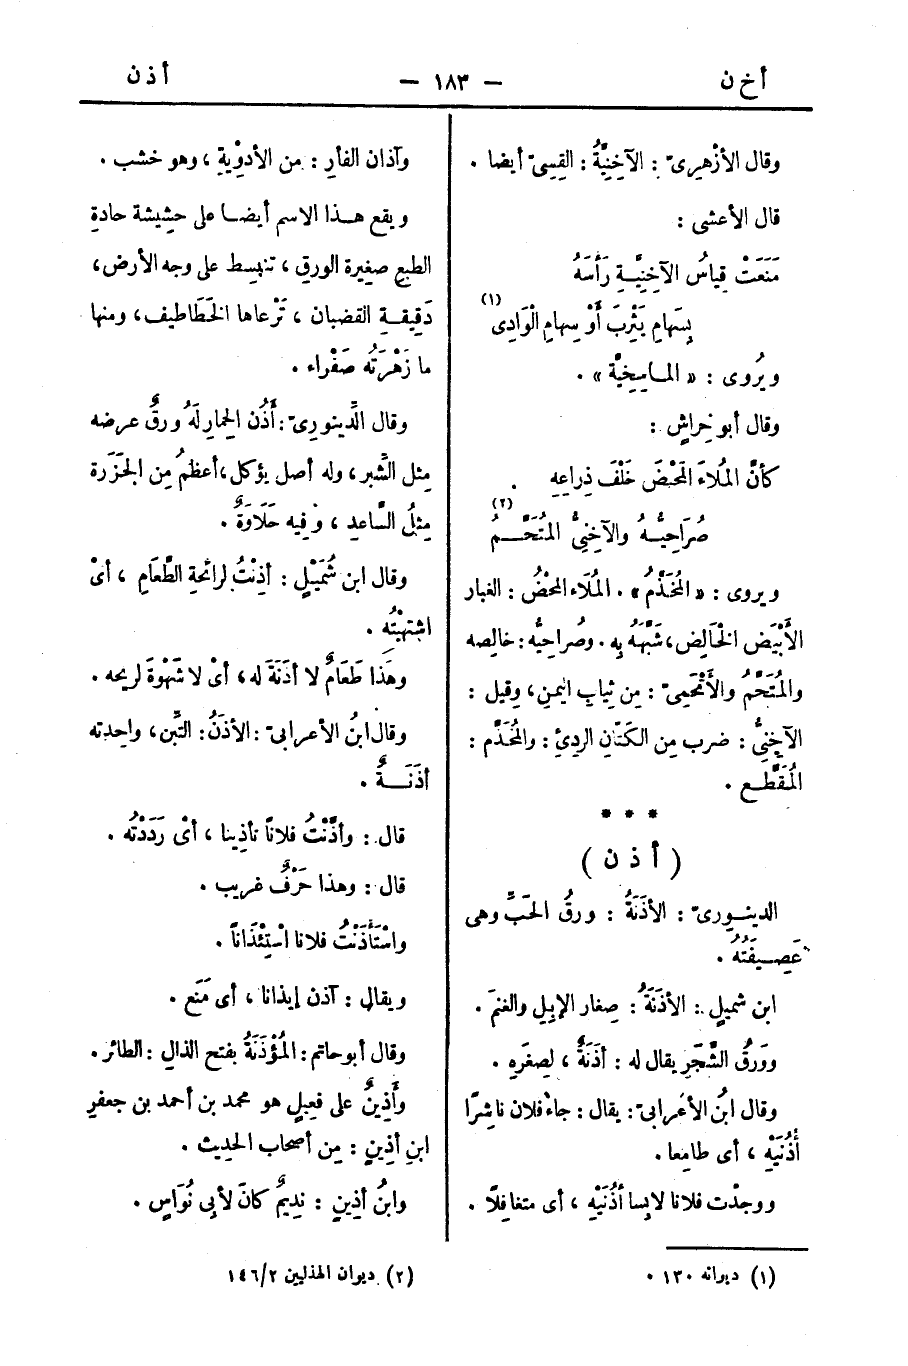 أخ ن — ١٨٣ — أذن
وقال الأزْهرِىّ : الآخِنِيَّةُ : القِسِىّ أيضا .
قال الأعشى :
مَنَعَتْ قِياسُ الآخِنِيَّةِ رَأْسَهُ
بِسَهامِ يَثْرِبَ أَوْ سِهامِ الْوَادِى (١)
ويُروى : « المـاسِخِيَّة » .
وقال أبو خِراشٍ :
كأنَّ المُلاءَ المَحْضَ خَلْفَ ذِراعِهِ .
صُرَاحِيُّـهُ والآخِنِىُّ المُتَحَّـمُ (٢)
ويروى : « المُخَذَّمُ » . المُلَاء المحْضُ : الغبار
الأَبْيَض الخْالِصُ، شَبَّهَهُ بِهِ . وصُراحِيُّه : خالِصه
والمُتَحَّمُ والأَتْحَمِىّ : مِن ثيابِ اليمنِ، وقيل :
الآخِنِىُّ : ضرب مِن الكَتّانِ الردِئِ : والمُخَذَّم :
المُقَطَّع .
* * *
( أ ذ ن )
الدينـورِىّ : الأَذَنَةُ : ورقُ الحَبِّ وهى
عَصِـيفَتُهُ .
ابن شميلٍ : الأذَنَةُ : صِغار الإبِلِ والغنمِ .
ووَرَقُ الشَّجَرِ يقال له : أذَنَةٌ ، لِصغَرِهِ .
وقال ابنُ الأعْرابىّ : يقال : جاءَ فلان ناشِرًا
أُذُنَيْهِ ، أى طامِعا .
ووجدْت فلانا لابِسا أُذُنَيْهِ ، أى متغافِلًا .
وآذان الفأرِ : مِن الأدْوِيةِ ، وهو خشب .
ويقع هـذا الاسم أيضـا على حشِيشة حادةِ
الطبعِ صغيرة الورقِ ، تنبسِط على وجه الأرض،
دَقِيقـةِ القضبان ، تَرْعاها الخَطَاطيف، ومنها
ما زَهْرَتُه صَفْراء .
وقال الدِّينورِىّ : أُذُن الحِمار لَهُ ورقٌ عرضه
مِثل الشِّبر، وله أصل يؤكل، أعظمُ مِن الجَزَرة
مِثلُ السَّاعدِ ، وفيه حَلَاوَةٌ .
وقال ابن شُمَيْلٍ : أذِنْتُ لرائحةِ الطَّعَامِ ، أىْ
اشتهيْتُه .
وهَذا طَعَامٌ لا أذَنَةَ له، أىْ لا شَهْوةَ لريحه .
وقال ابنُ الأعرابىّ : الأذَنُ : التِّبن، واحِدته
أذَنَــةٌ .
قال : وأذَّنْتُ فلانًا تأذِينا ، أىْ رَدَدْتُه .
قال : وهذا حَرْفٌ غريب .
واسْتَأْذَنْتُ فلانا اسْتِئْذَاناً .
ويقال : آذن إيذانا ، أى مَنَع .
وقال أبوحاتم : المُؤْذَنَةُ بفتح الذالِ : الطائر .
وأَذِينٌ على فعِيلٍ هو محمد بن أحمد بن جعفرِ
ابنِ أذِينٍ : مِن أصحاب الحدِيث .
وابنُ أذِينٍ : نديمٌ كانَ لأبِى نُوَاسٍ .
(١) ديوانه ١٣٠ .
(٢) ديوان الهذليين ١٤٦/٢